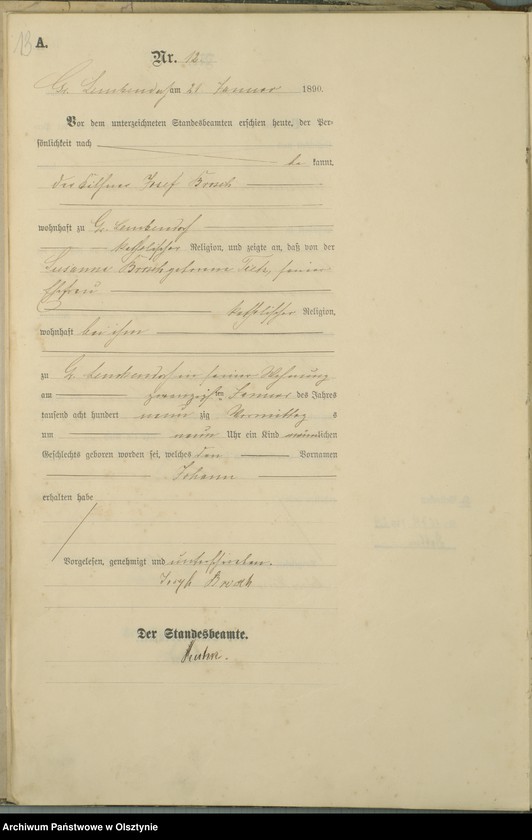 13 A.
Nr. 12
Gr. Lemkendorf am 21 Januar 1890.
Vor dem unterzeichneten Standesbeamten erschien heute, der Per-
sönlichkeit nach
be kannt,
der Josef
wohnhaft zu Gr. Lemkendorf
katholischer Religion, und zeigte an, daß von der
Susanna geborene seiner
Ehefrau
katholischer Religion,
wohnhaft bei ihm
zu Gr. Lemkendorf in seiner Wohnung
am zwanzigsten Januar des Jahres
tausend acht hundert neun zig Vormittag s
um neun Uhr ein Kind männlichen
Geschlechts geboren worden sei, welches den Vornamen
Johann
erhalten habe
Vorgelesen, genehmigt und unterschrieben.
Joseph
Der Standesbeamte.
Archiwum Państwowe w Olsztynie